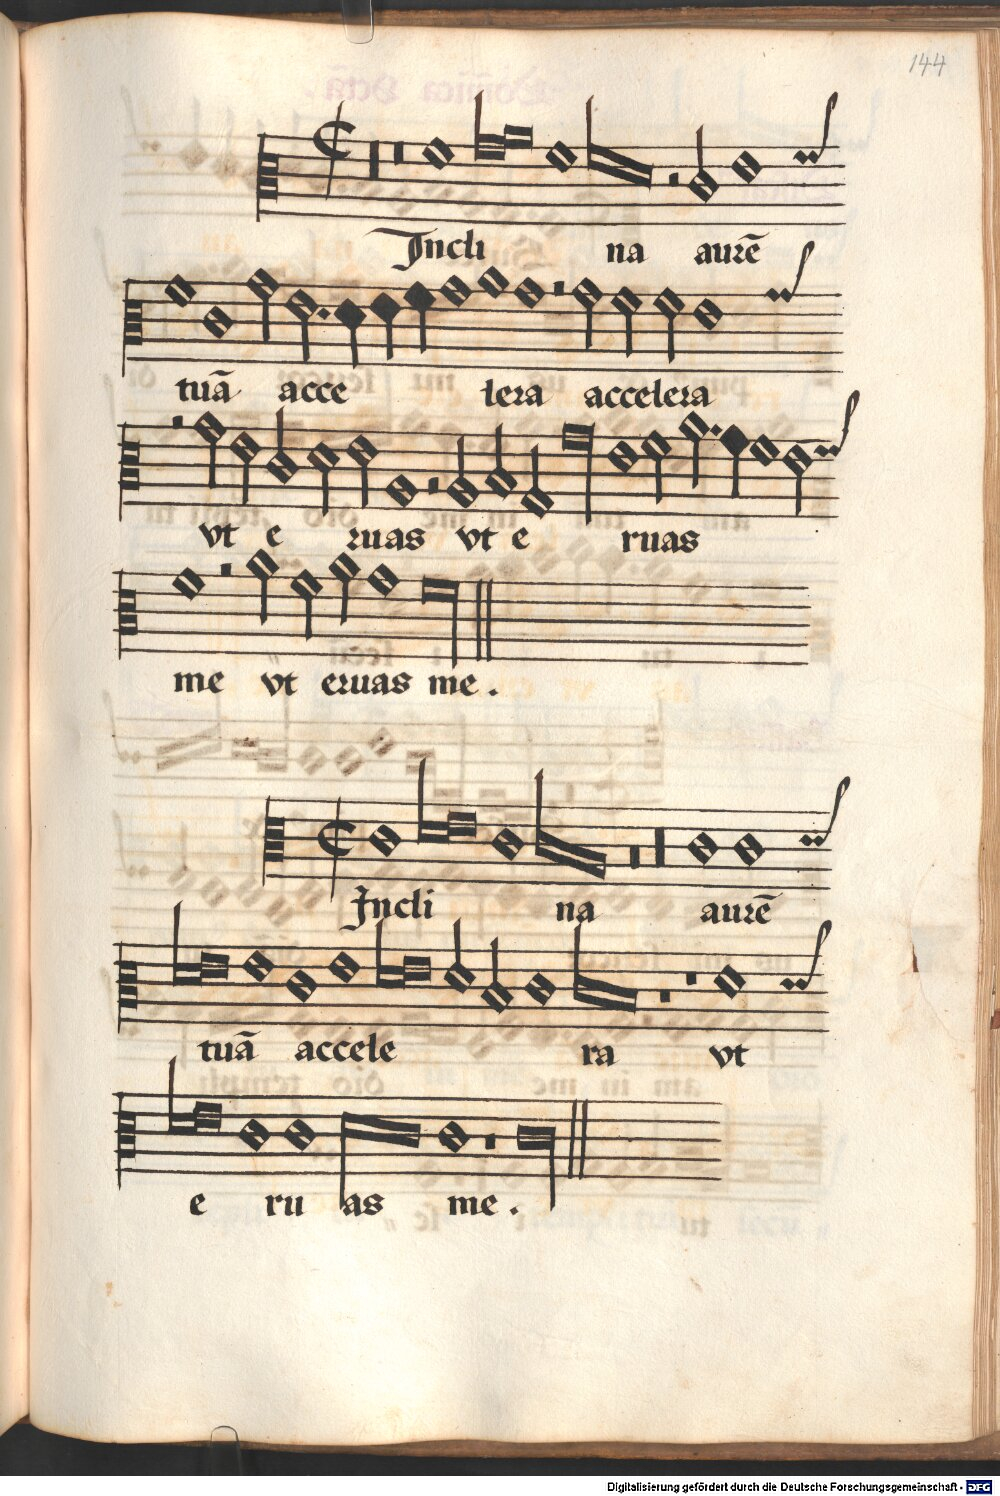 144
Incli na aurē
tuā acce lera accelera
vt e ruas vt e ruas
me vt eruas me.
Incli na aurē
tuā accele ra vt
e ru as me.
Digitalisierung gefördert durch die Deutsche Forschungsgemeinschaft - DFG